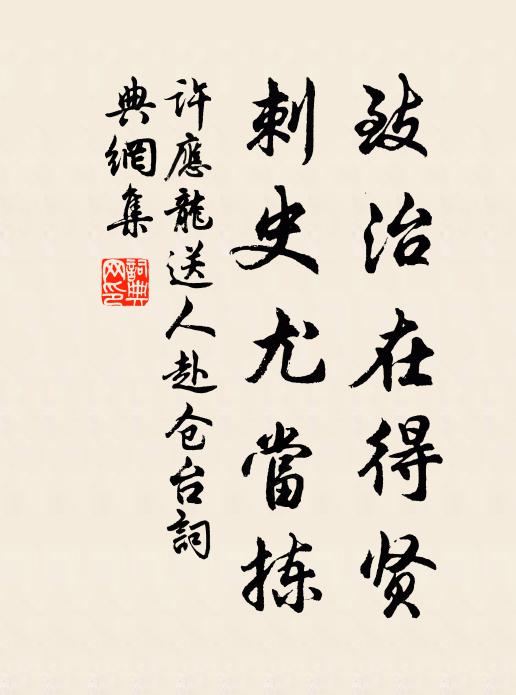 致治在得贤
刺史尤當拣
许應龍送人赴仓台詞
典網集
詞典
网印